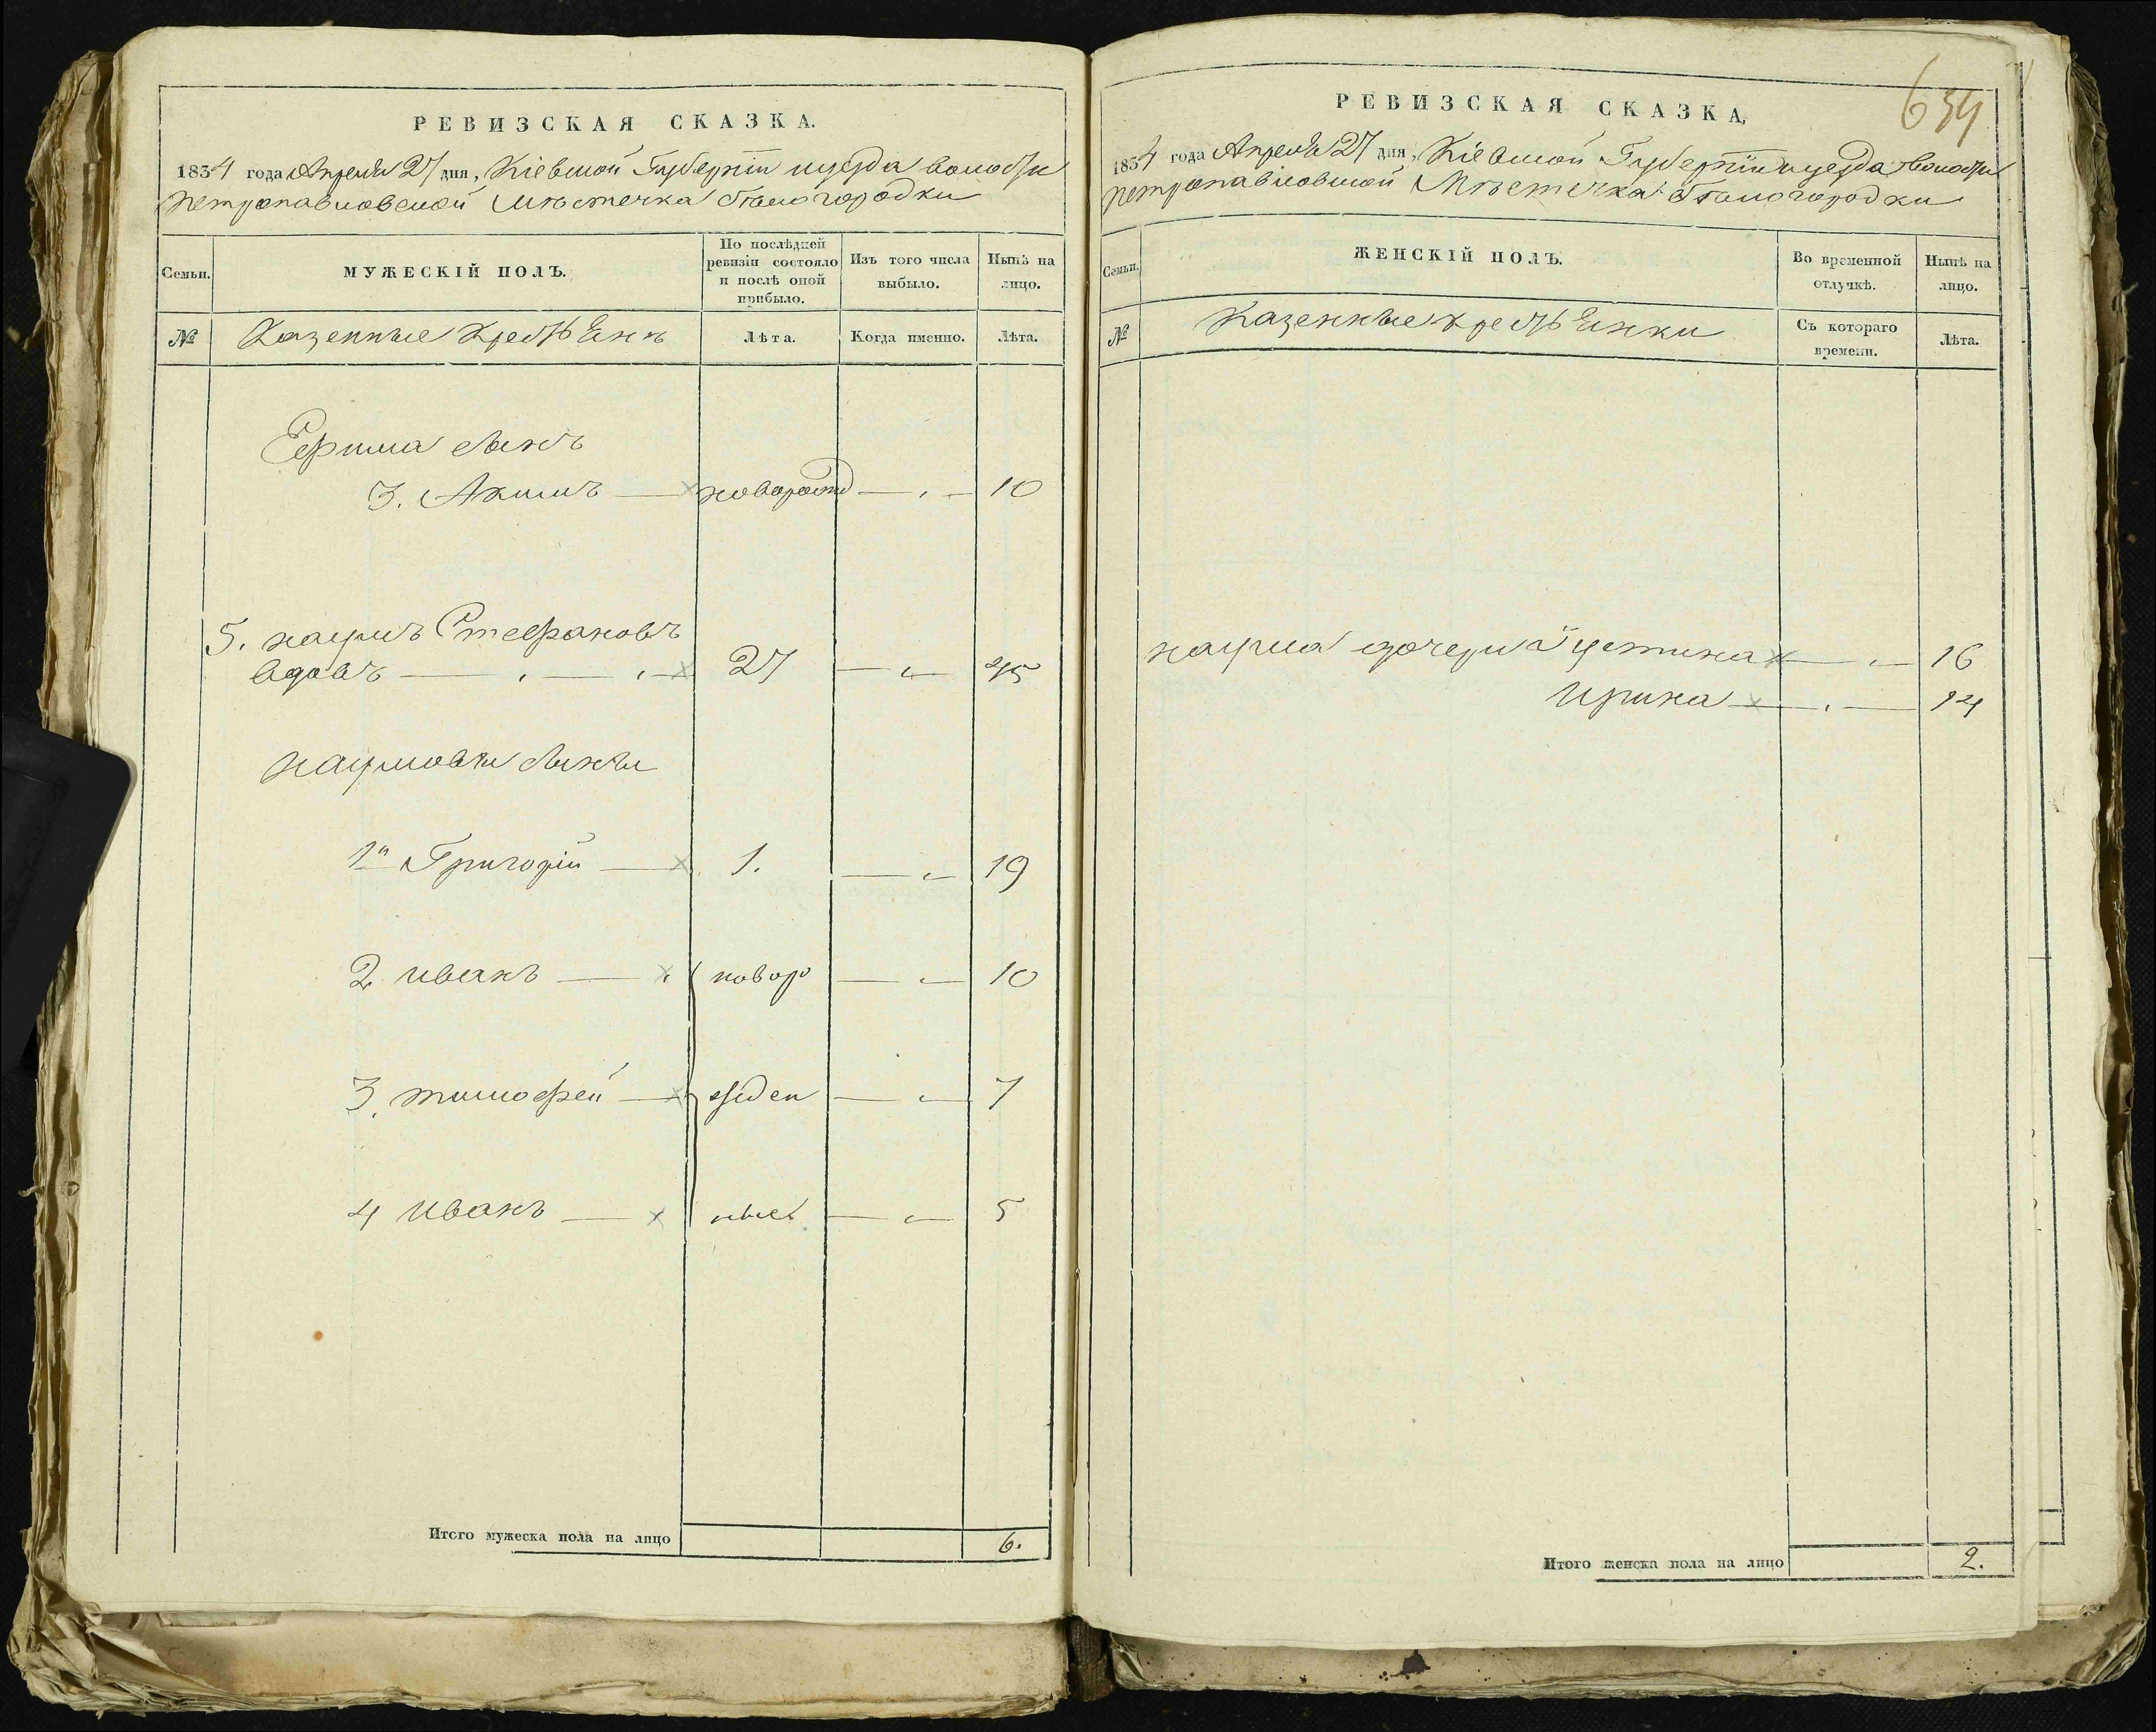 РЕВИЗСКАЯ СКАЗКА.
1834 года Апреля 27 дня, Кіевской Губерніи и уезда волости
Петропавловской Мѣстечка Бѣлогородки
Семьи.
МУЖЕСКІЙ ПОЛЪ.
По послѣдней ревизіи состояло и послѣ оной прибыло.
Изъ того числа выбыло.
Нынѣ на лицо.
№
Казенные крестьянъ
Лѣта.
Когда именно.
Лѣта.
Ефима сынъ
3. Акимъ новорожд 10
5. Наумъ Стефановъ
вдовъ 27 45
Наумовы сыны
1й Григорій 1. 19
2 Иванъ новоро 10
3. Тимофей жден 7
4 Иванъ ные 5
Итого мужеска пола на лицо 6.
634
РЕВИЗСКАЯ СКАЗКА,
1834 года Апреля 27 дня, Кіевской Губерніи и уезда волости
Петропавловской Мѣстечка Бѣлогородки
Семьи.
ЖЕНСКІЙ ПОЛЪ.
Во временной отлучкѣ.
Нынѣ на лицо.
№
Казенные крестьянки
Съ котораго времени.
Лѣта.
Наума дочери Устина 16
Ирина 14
Итого женска пола на лицо 2.